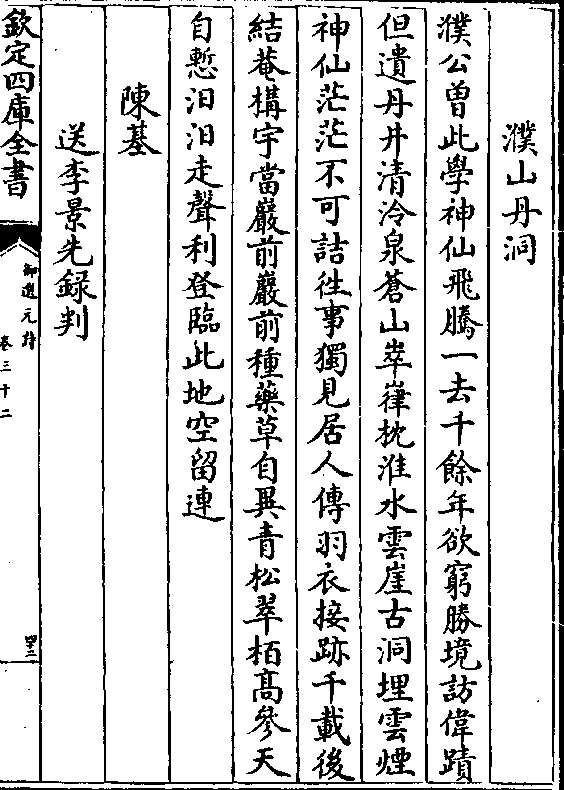 濮山丹洞
濮公曽此學神仙飛騰一去千餘年欲窮勝境訪偉蹟
但遺丹井清泠泉蒼山崒嵂枕淮水雲崖古洞埋雲煙
神仙茫茫不可詰徃事獨見居人傳羽衣接跡千載後
結菴構宇當巖前巖前種藥草自異青松翠栢髙參天
自慙汨汨走聲利登臨此地空留連
陳基
送李景先録判
欽定四庫全書
御選元詩
卷三十二
四三